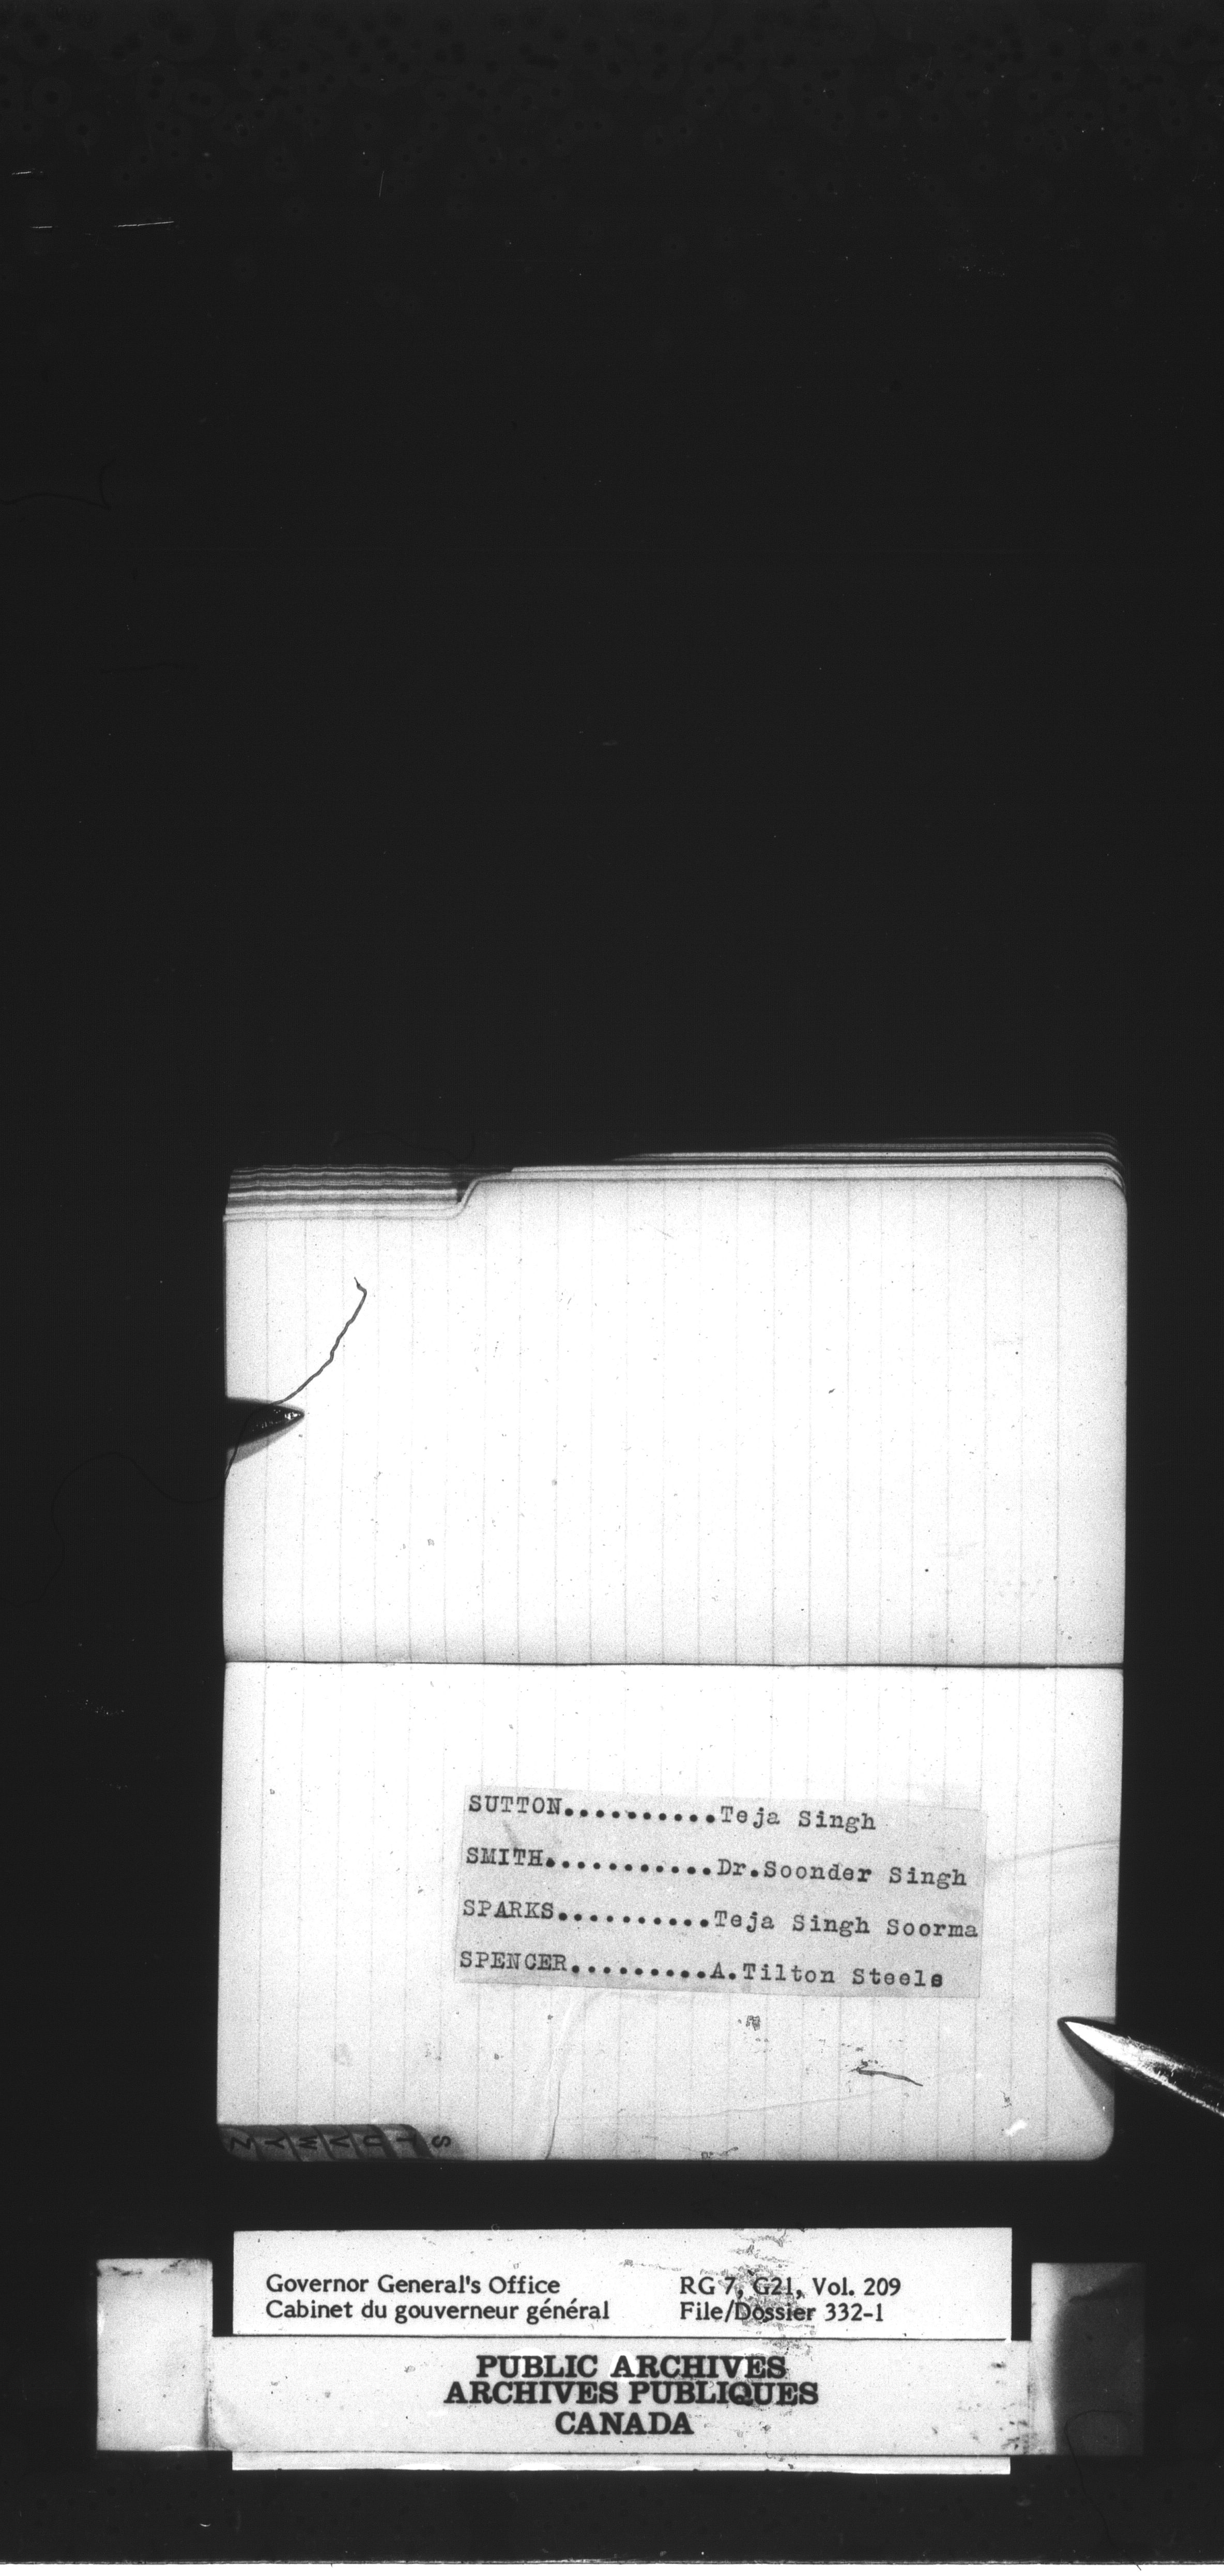 SUTTON..........Teja Singh
SMITH...........Dr.Soonder Singh
SPARKS..........Teja Singh Soorma
SPENCER.........A.Tilton Steele
Z Y W V U T S
Governor General's Office RG 7, G21, Vol. 209
Cabinet du gouverneur général File/Dossier 332-1
PUBLIC ARCHIVES
ARCHIVES PUBLIQUES
CANADA